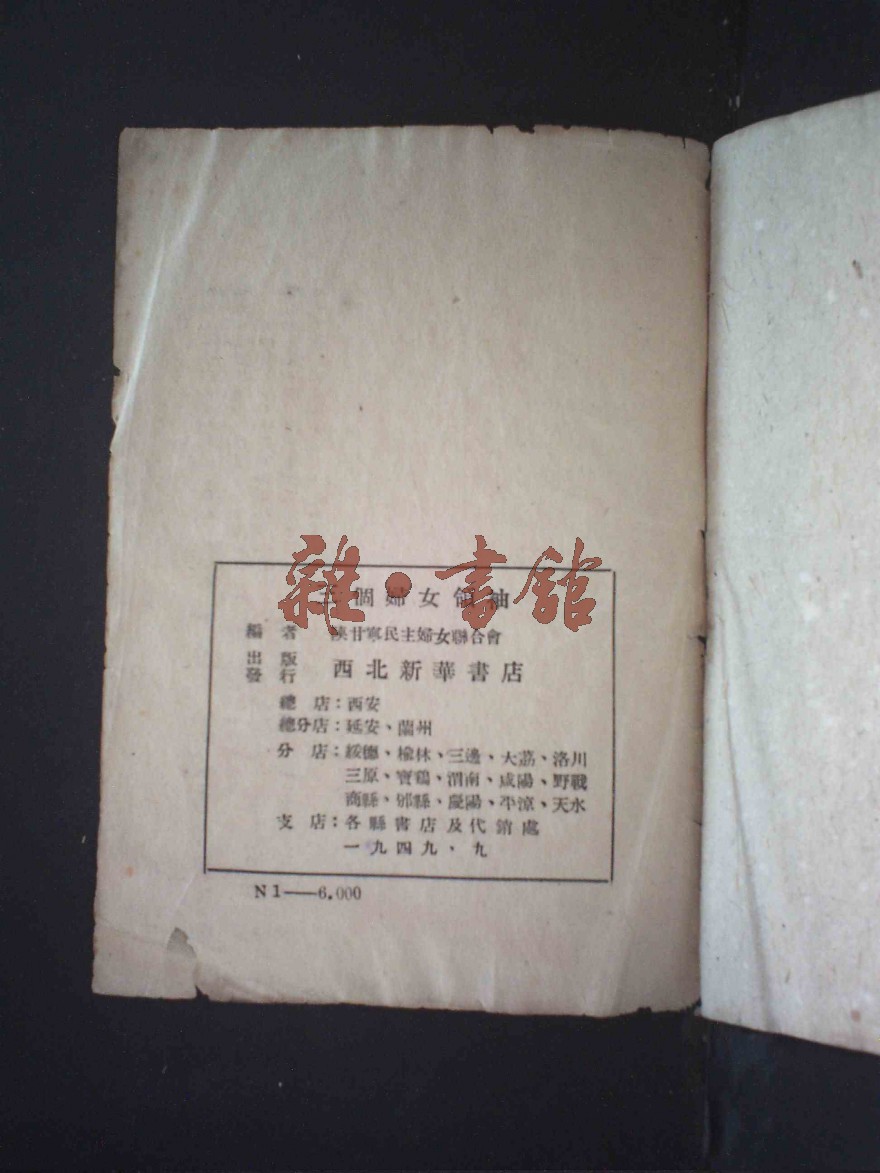 雜·書館
三個婦女領袖
編 者 陝甘寧民主婦女聯合會
出版
發行 西北新華書店
總 店：西安
總分店：延安、蘭州
分 店：綏德、榆林、三邊、大荔、洛川
三原、寶鷄、渭南、咸陽、野戰
商縣、邠縣、慶陽、平涼、天水
支 店：各縣書店及代銷處
一九四九·九
N 1——6.000